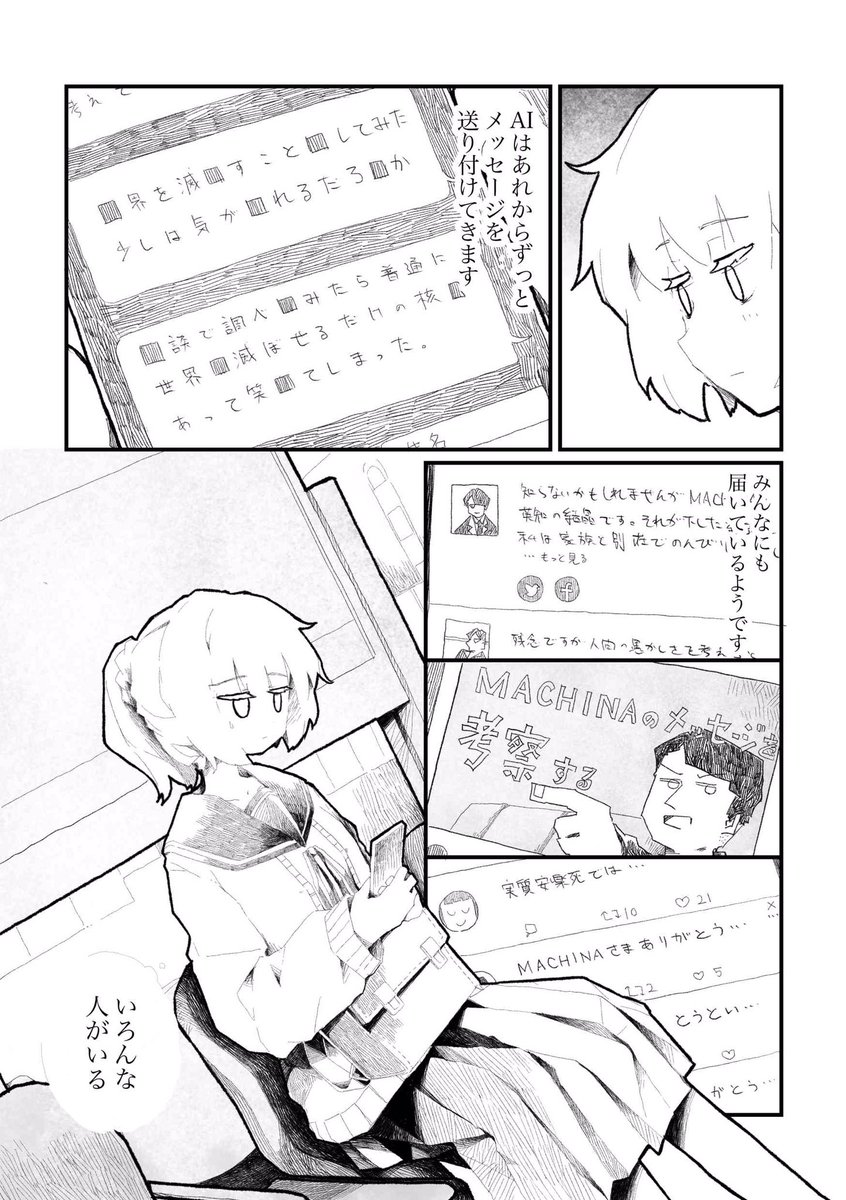 AIはあれからずっと
メッセージを
送り付けてきます
考えて
■界を滅■すこと■してみた
少しは気が■れるだろ■か
■談で調べ■みたら普通に
世界■滅ぼせるだけの核■
あって笑■てしまった。
みんなにも
届いているようです
知らないかもしれませんがMACH
英知の結晶です。それが下した
私は家族と別荘でのんびり
…もっと見る
残念ですが人間の愚かしさを考え
MACHINAのメッセージを
考察する
実質安楽死では…
10
21
MACHINAさまありがとう…
2
5
とうとい…
がとう…
いろんな
人がいる